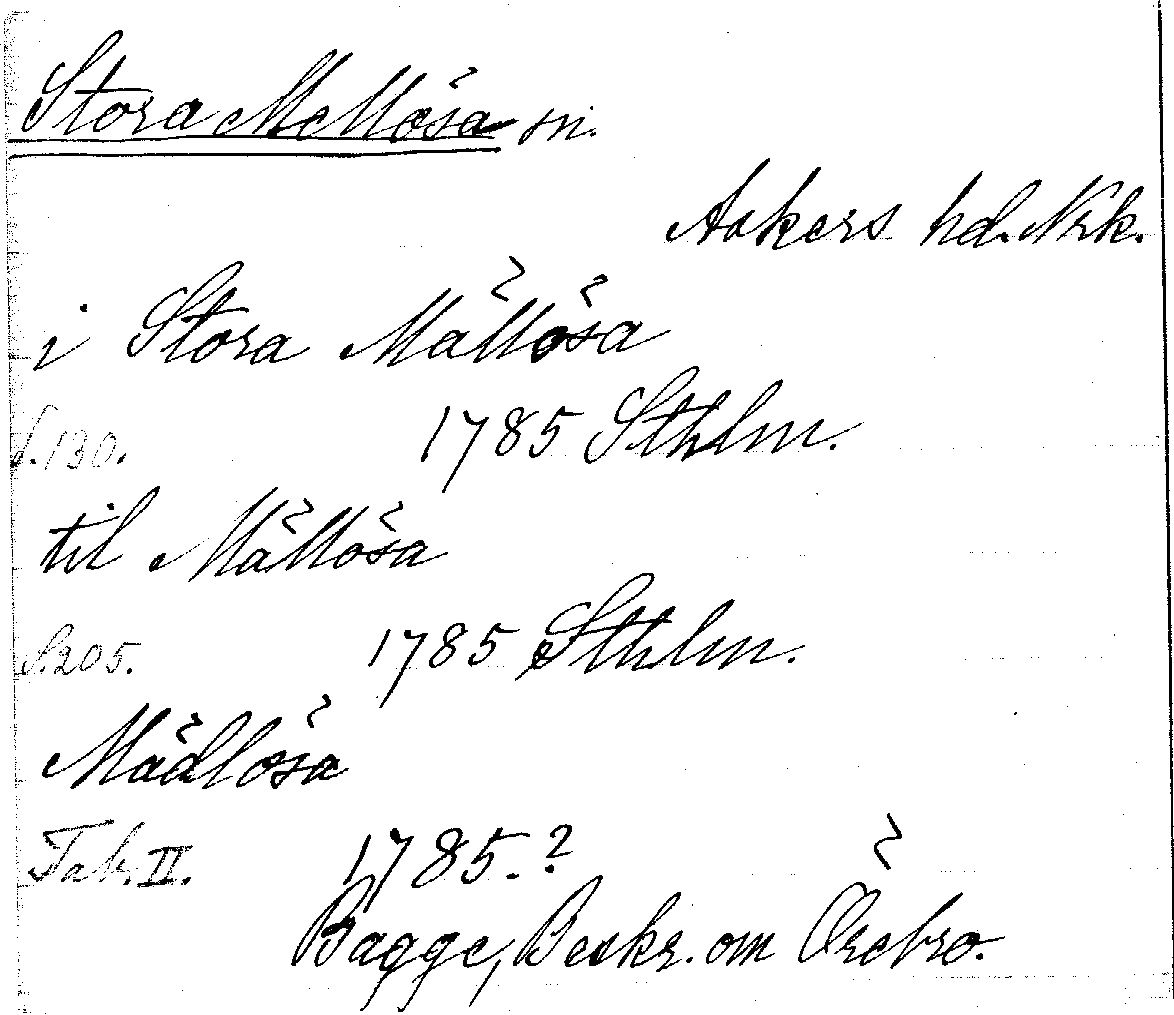 Stora Mellösa sn.
Askers hd. Nrk.
i Stora Mällösa
S. 130. 1785 Sthlm.
til Mällösa
S. 205. 1785 Sthlm.
Mädlösa
Tab. II. 1785.?
Bagge, Beskr. om Örebro.